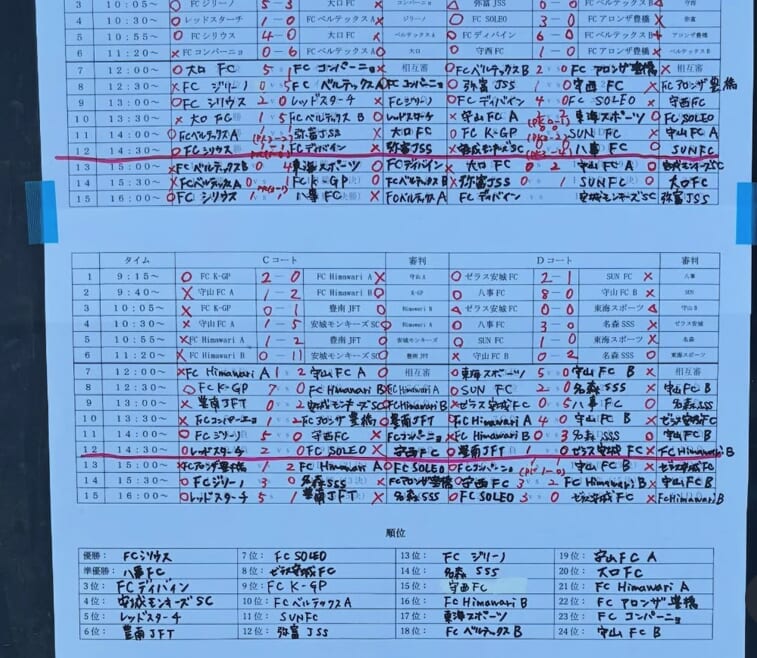 3 10:05～ ○ FCジリーノ 5 － 3 大口FC
4 10:30～ ○ レッドスターチ 1 － 0 FCベルテックスA × ジリーノ ○ FC SOLEO 3 － 0 FCアロンザ豊橋 × 弥富
5 10:55～ ○ FCシリウス 4 － 0 FCベルテックスA ○ FCディバイン 6 － 0 FCベルテックスB アロンザ豊橋
6 11:20～ × FCコンパーニョ 0 － 6 FCベルテックスA ○ 大口 ○ 守西FC 1 － 0 FCアロンザ豊橋 × ベルテックスB
7 12:00～ ○ 大口FC 5 1 FCコンパーニョ × 相互審 ○ FCベルテックスB 2 0 FCアロンザ豊橋 × 相互審
8 12:30～ × FCジリーノ 0 5 FCベルテックスA ○ FCコンパーニョ ○ 弥富JSS 5 1 守西FC × FCアロンザ豊橋
9 13:00～ ○ FCシリウス 2 0 レッドスターチ × FCジリーノ ○ FCディバイン 4 0 FC SOLEO × 守西FC
10 13:30～ × 大口FC 1 5 FCベルテックスB ○ レッドスターチ × 守山FC A 東海スポーツ ○ FC SOLEO
11 14:00～ FCベルテックスA 弥富JSS 大口FC FC K-GP SUN FC × 守山FC A
12 14:30～ ○ FCシリウス FCディバイン × 弥富JSS × 安城モンキーズSC 八事FC ○ SUN FC
13 15:00～ × FCベルテックスB 0 4 東海スポーツ ○ FCディバイン × 大口FC 0 2 守山FC A ○ 安城モンキーズSC
14 15:30～ × FCベルテックスA 0 1 FC K-GP ○ FCベルテックスB × 弥富JSS 0 1 SUN FC ○ 大口FC
15 16:00～ ○ FCシリウス 1 1 八事FC × FCベルテックスA FCディバイン 安城モンキーズSC 弥富JSS
タイム Cコート 審判 Dコート 審判
1 9:15～ ○ FC K-GP 2 － 0 FC Himawari A × 守山A ○ ゼラス安城FC 2 － 1 SUN FC × 八事
2 9:40～ × 守山FC A 1 － 2 FC Himawari B ○ K-GP ○ 八事FC 8 － 0 守山FC B × SUN
3 10:05～ × FC K-GP 0 － 1 豊南JFT ○ Himawari B △ ゼラス安城FC 0 － 0 東海スポーツ △ 守山B
4 10:30～ × 守山FC A 1 － 5 安城モンキーズSC ○ Himawari A ○ 八事FC 3 － 0 名森SSS × ゼラス安城
5 10:55～ × FC Himawari A 1 － 2 豊南JFT ○ 安城モンキーズ ○ SUN FC 1 － 0 東海スポーツ × 名森
6 11:20～ × FC Himawari B 0 － 11 安城モンキーズSC ○ 豊南JFT × 守山FC B 0 － 2 名森SSS ○ 東海スポーツ
7 12:00～ × FC Himawari A 1 2 守山FC A ○ 相互審 ○ 東海スポーツ 5 0 守山FC B × 相互審
8 12:30～ ○ FC K-GP 7 0 FC Himawari B × FC Himawari A ○ SUN FC 2 0 名森SSS × 守山FC B
9 13:00～ × 豊南JFT 0 2 安城モンキーズSC ○ FC Himawari B × ゼラス安城FC 0 5 八事FC ○ 名森SSS
10 13:30～ × FCコンパーニョ 0 2 FCアロンザ豊橋 ○ 豊南JFT ○ FC Himawari A 4 0 守山FC B × ゼラス安城FC
11 14:00～ ○ FCジリーノ 5 0 守西FC × FCコンパーニョ × FC Himawari B 0 3 名森SSS ○ 守山FC B
12 14:30～ ○ レッドスターチ 2 0 FC SOLEO × 守西FC ○ 豊南JFT 1 0 ゼラス安城FC × FC Himawari B
13 15:00～ × FCアロンザ豊橋 1 2 FC Himawari A ○ FC SOLEO ○ FCコンパーニョ 守山FC B × ゼラス安城FC
14 15:30～ ○ FCジリーノ 3 0 名森SSS × FCアロンザ豊橋 ○ 守西FC 3 2 FC Himawari B × 守山FC B
15 16:00～ ○ レッドスターチ 5 1 豊南JFT × 名森SSS ○ FC SOLEO 3 0 ゼラス安城FC × FC Himawari B
順位
優勝： FCシリウス 7位： FC SOLEO 13位： FCジリーノ 19位： 守山FC A
準優勝： 八事FC 8位： ゼラス安城FC 14位： 名森SSS 20位： 大口FC
3位： FCディバイン 9位： FC K-GP 15位： 守西FC 21位： FC Himawari A
4位： 安城モンキーズSC 10位： FCベルテックスA 16位： FC Himawari B 22位： FCアロンザ豊橋
5位： レッドスターチ 11位： SUN FC 17位： 東海スポーツ 23位： FCコンパーニョ
6位： 豊南JFT 12位： 弥富JSS 18位： FCベルテックスB 24位： 守山FC B